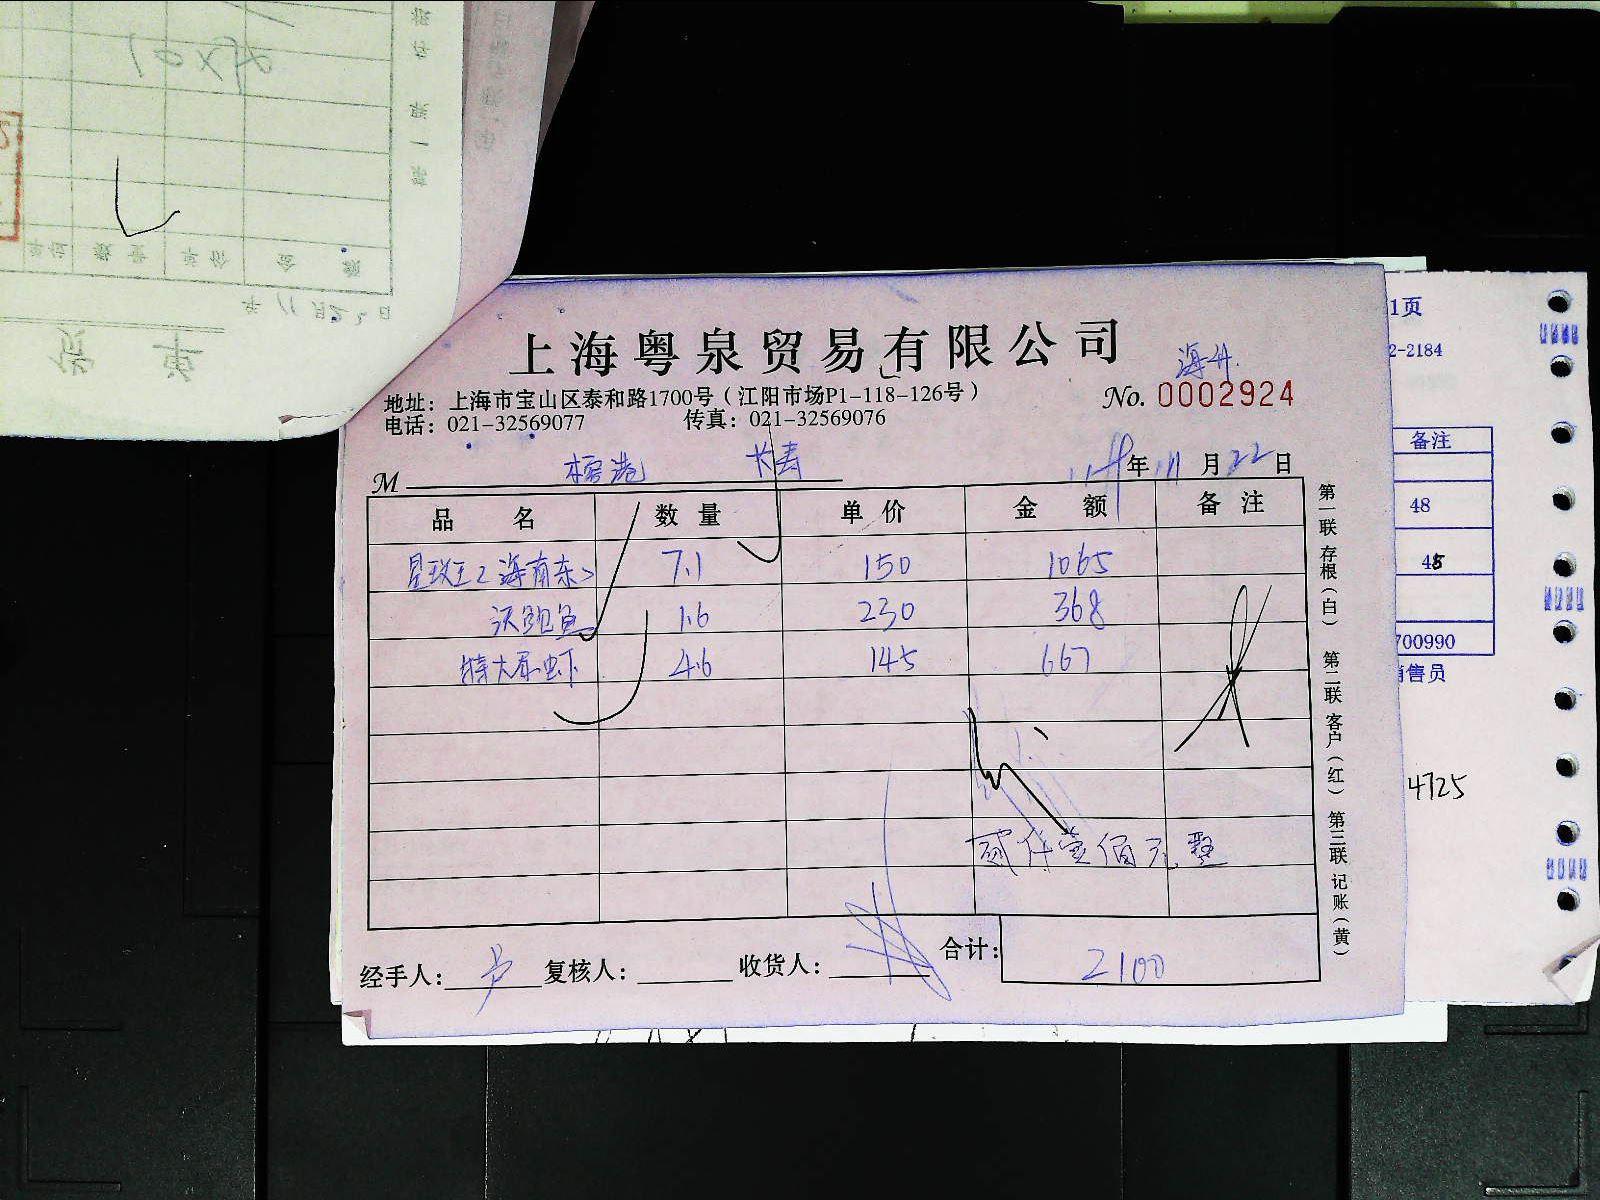 上海粤泉贸易有限公司
地址：上海市宝山区泰和路1700号（江阳市场P1-118-126号）
No. 0002924
电话：021-32569077 传真：021-32569076
M 长寿 年 11 月 22 日
品 名 数 量 单 价 金 额 备 注
7.1 150 1065
沃鲍鱼 1.6 230 368
特大 虾 4.6 145 667
贰仟壹佰元整
经手人： 复核人： 收货人： 合计： 2100
第一联 存根（白） 第二联 客户（红） 第三联 记账（黄）
1页
2-2184
备注
48
700990
销售员
4725
第 一 联 存
单位 数 量 单 价 金 额
年 11 月 日
货 单